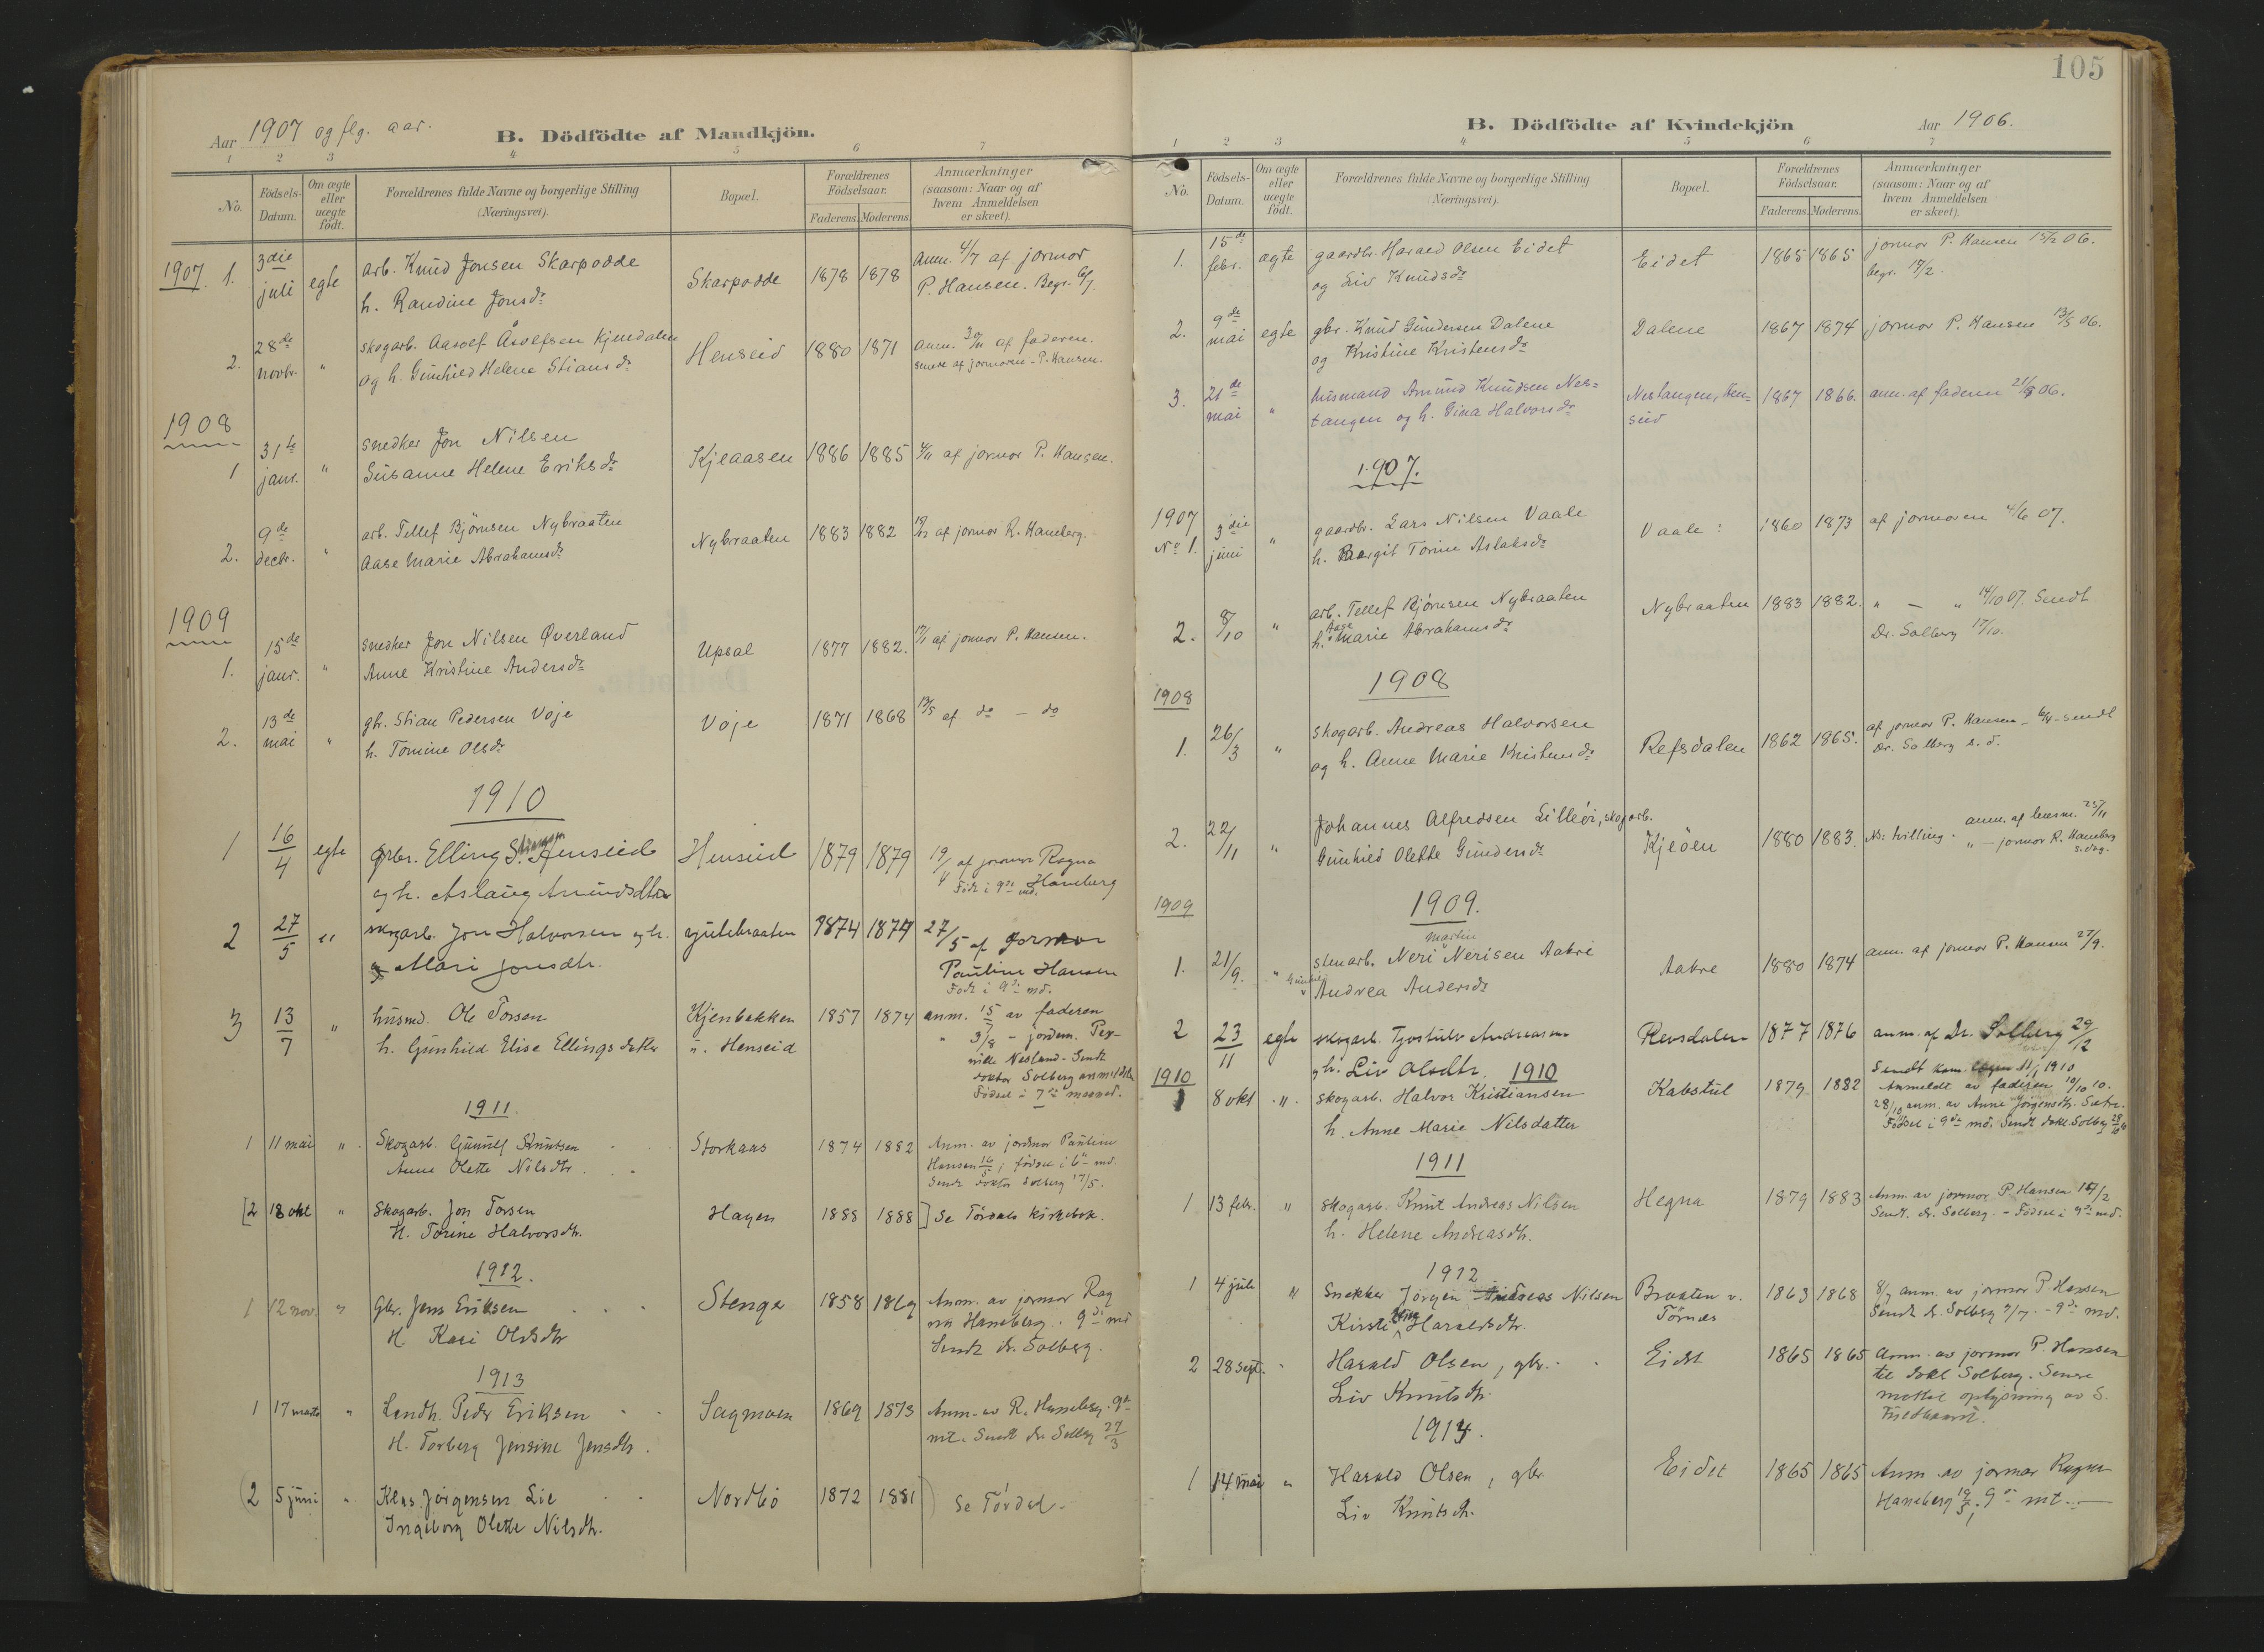 Aar 1907 og flg. aar. B. Dödfödte af Mandkjön.
1 2 3 4 5 6 7
No. Födsels-Datum. Om ægte eller uægte födt. Forældrenes fulde Navne og borgerlige Stilling (Næringsvei). Bopæl. Forældrenes Födselsaar. Faderens. Moderens. Anmærkninger (saasom: Naar og af hvem Anmeldelsen er skeet).
1907. 1. 3die juli egte arb. Knud Jonsen Skarpodde Skarpodde 1878 1878 Anm. 4/7 af jormor
h. Randine Jonsdr P. Hansen. Begr. 6/7.
2. 28de novbr. " skogarb. Aasolf Åsolfsen Kjendalen Henseid 1880 1871 anm. af faderen.
og h. Gunhild Helene Stiansdr senere af jormoren - P. Hansen.
1908
1 31te janr. " snedker Jon Nilsen Kjeaasen 1886 1885 af jormor P. Hansen.
Susanne Helene Eriksdr
2. 9de decbr. " arb. Tellef Björnsen Nybraaten Nybraaten 1883 1882 af jormor R. Haneberg.
Aase Marie Abrahamsdr
1909
1. 15de janr. " snedker Jon Nilsen Øverland Upsal 1877 1882. af jormor P. Hansen.
Anne Kristine Andersdr
2. 13de mai " gbr. Stian Pedersen Voje Voje 1871 1868 13/5 af do - do
h. Tomine Olsdr
1910
1 16/4 egte grbr. Elling S. Henseid Henseid 1879 1879 19/4 af jormor Ragna
og h. Aslaug Amundsdtr Haneberg
Födt i 9de md.
2 27/5 " skogarb. Jon Halvorsen og h. 1874 1874 27/5 af jormor
Mari Jonsdtr. Pauline Hansen
Födt i 9de md.
3 13/7 " husmd. Ole Torsen Kjenbakken 1857 1874 anm. 15/7 av faderen
h. Gunhild Elise Ellingsdatter u. Henseid " 3/8 - jordem. Per-
nille Nesland - Sendt
doktor Solberg
Födsel i 7de maaned.
1911.
1 11 mai " Skogarb. Gunnulf Knutsen Storkaas 1874 1882 Anm. av jordmor Pauline
Anne Olette Nilsdtr. Hansen 16/5; födsel i 6te md.
Sendt doktor Solberg 17/5.
[2 18 okt " Skogarb. Jon Torsen Hagen 1888 1888] Se Tördals kirkebok.
H. Torine Halvorsdtr.
1912.
1 12 nov. " Gbr. Jens Eriksen Stenge 1858 1869 Anm. av jormor Rag
H. Kari Olsdtr na Haneberg. 9de md
Sendt dr. Solberg.
1913
1 17 marts " Landh. Peder Eriksen Sagmoen 1869 1873 Anm. av R. Haneberg. 9de
H. Torberg Jensine Jensdtr. md. Sendt dr. Solberg 27/3
(2 5 juni " Klas Jörgensen Lie Nordbö 1872 1881) Se Tördal.
Ingeborg Olette Nilsdtr.
105
B. Dödfödte af Kvindekjön Aar 1906.
1 2 3 4 5 6 7
No. Födsels-Datum. Om ægte eller uægte födt. Forældrenes fulde Navne og borgerlige Stilling (Næringsvei). Bopæl. Forældrenes Födselsaar. Faderens. Moderens. Anmærkninger (saasom: Naar og af hvem Anmeldelsen er skeet).
1. 15de febr. ægte gaardbr. Harald Olsen Eidet Eidet 1865 1865 jormor P. Hansen 15/2 06.
og Liv Knudsdr begr. 17/2.
2. 9de mai egte gbr. Knud Gundersen Dalene Dalene 1867 1874 jormor P. Hansen 13/5 06.
og Kristine Kristensdr
3. 21de mai " husmand Amund Knudsen Nes= Neslangen, Hen= 1867 1866. anm. af faderen 06.
tangen og h. Gina Halvorsdr seid
1907.
1907 No 1. 3die juni " gaardbr. Lars Nilsen Vaale Vaale : 1860 1873 af jormoren 4/6 07.
h. Bergit Torine Aslaksdr
2. 8/10 " arb. Tellef Björnsen Nybraaten Nybraaten 1883 1882. " - " 14/10 07. Sendt
h. Aase Marie Abrahamsdr Dr. Solberg 17/10.
1908
1908
1. 26/3 " skogarb. Andreas Halvorsen Refsdalen 1862 1865. af jormor P. Hansen - 6/4 - sendt
og h. Anne Marie Kristensdr Dr. Solberg s. d.
2. 22/11 " Johannes Alfredsen Lilleöi, skogarb. Kjeöen 1880 1883. Ns: tvilling. anm. af lensm. 25/11
Gunhild Olette Gundersdr " - jormor R. Haneberg s. dag.
1909
1909.
1. 21/9. " stenarb. Neri Martin Nerisen Aakre Aakre 1880 1874 anm. af jormor P. Hansen 27/9.
Andrea Andersdr
2 23/11 egte skogarb. Tjostulv Andreasen Revsdalen 1877 1876 anm. af Dr. Solberg 29/12
og h. Liv Olsdtr. Sendt 1910
1910
1910
1 8 okt " skogarb. Halvor Kristiansen Kabstul 1879 1882 Anmeldt av faderen 10/10 10.
h. Anne Marie Nilsdatter 28/10 anm. av Anne Jörgensdtr.
Födsel i 9de md. Sendt dokt. Solberg
1911
1 13 febr. " skogarb. Knut Andreas Nilsen Hegna 1879 1883 Anm. av jormor P. Hansen
h. Helene Andreasdtr. Sendt dr. Solberg. - Födsel i 9de md.
1912
1 4 juli " Snekker Jörgen Andreas Nilsen Braaten v. 1863 1868 8/7 anm. av jormor P Hansen
Kirsti Haraldsdtr. Törnes Sendt dr. Solberg 9/7. - 9de md.
2 28 sept. " Harald Olsen, gbr. Eidet 1865 1865 Anm. av jormor P. Hansen
Liv Knutsdtr. til dokt Solberg. Senere
mottat oplysning av S.
1914.
1 14 mai " Harald Olsen, gbr. Eidet 1865 1865 Anm. av jormor Ragna
Liv Knutsdtr. Haneberg 19/5, 9de md.